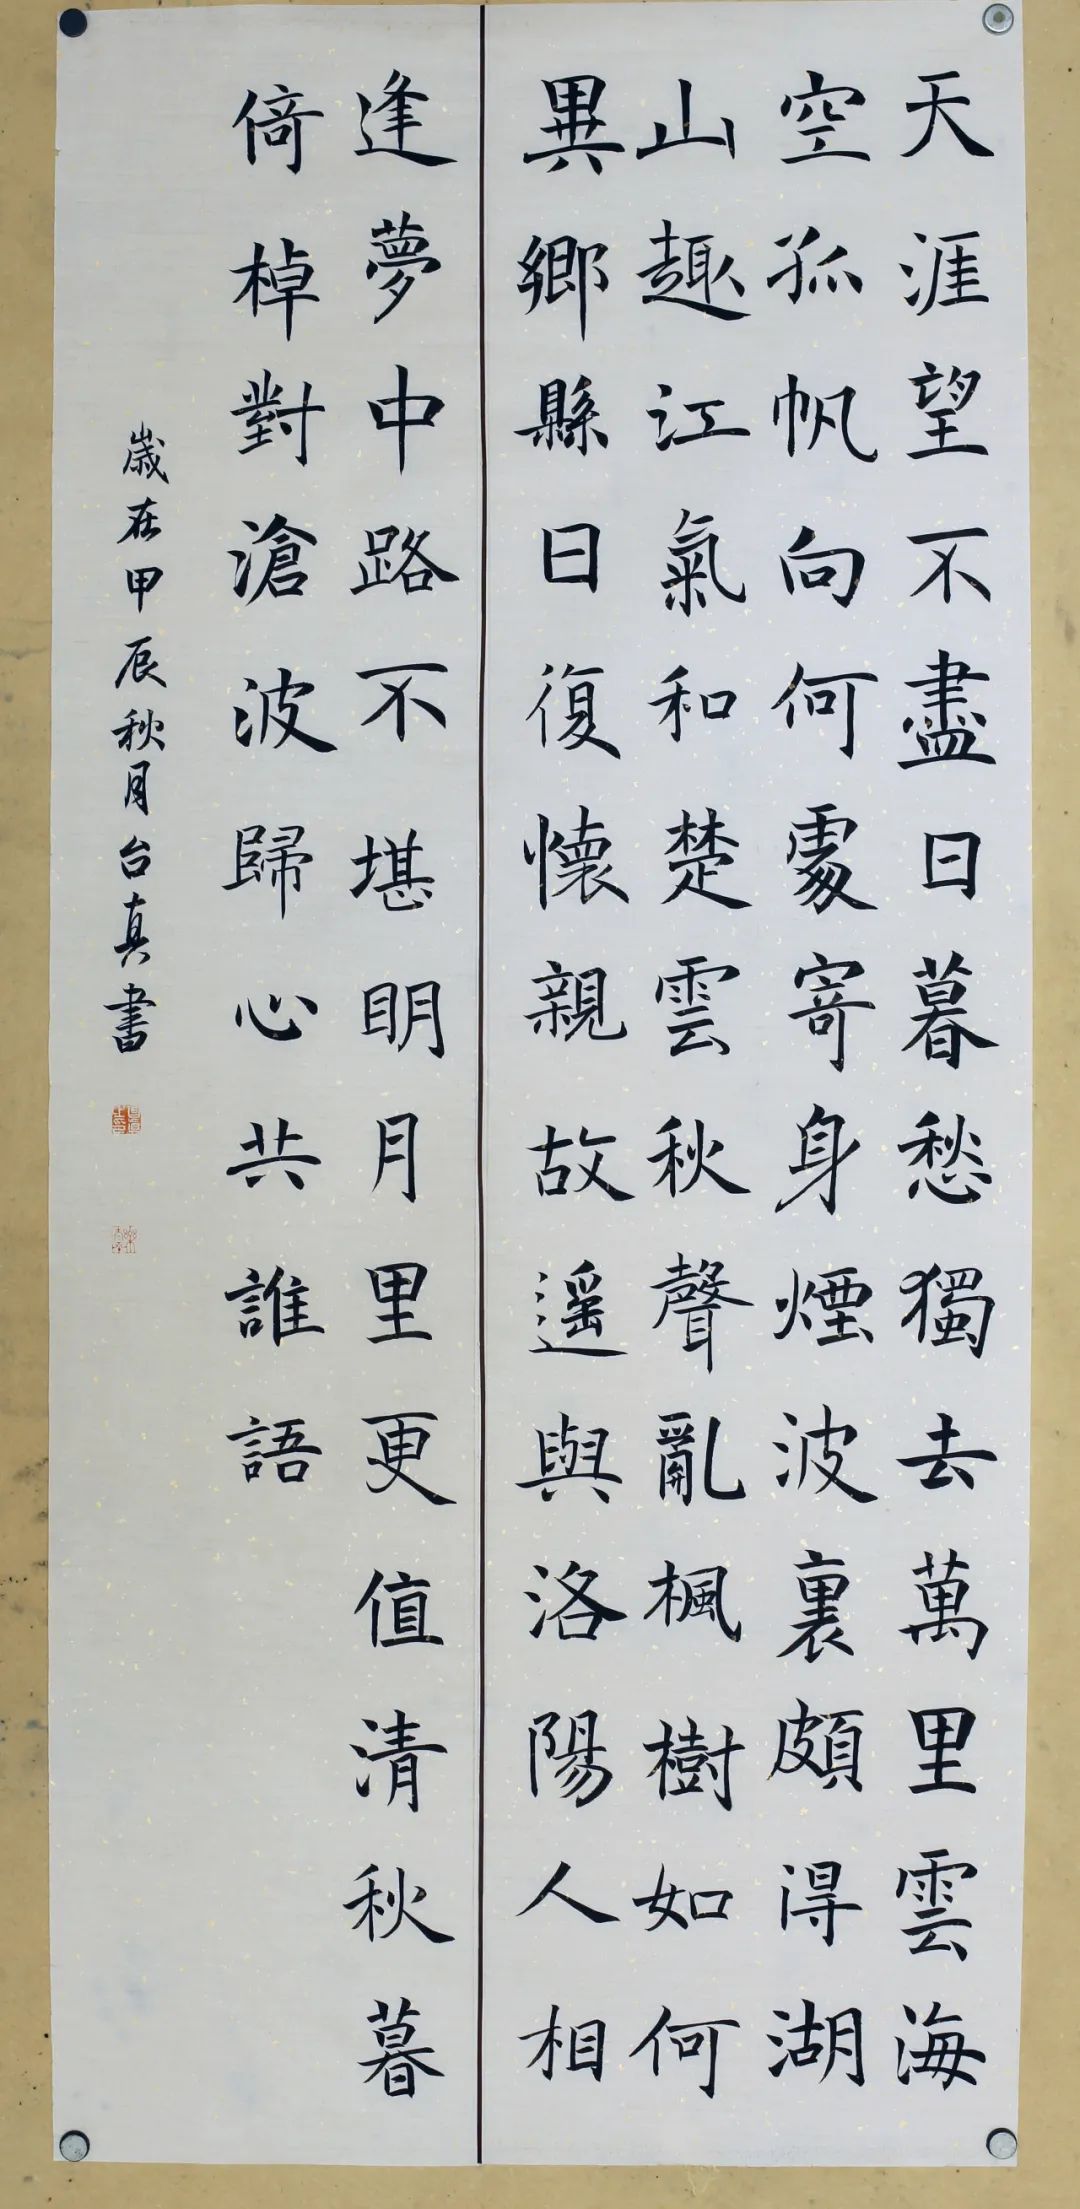 天涯望不盡日暮愁獨去萬里雲海
空孤帆向何處寄身煙波裏頗得湖
山趣江氣和楚雲秋聲亂楓樹如何
異鄉縣日復懷親故遥與洛陽人相
逢夢中路不堪明月里更值清秋暮
倚棹對滄波歸心共誰語
歲在甲辰秋月台真書